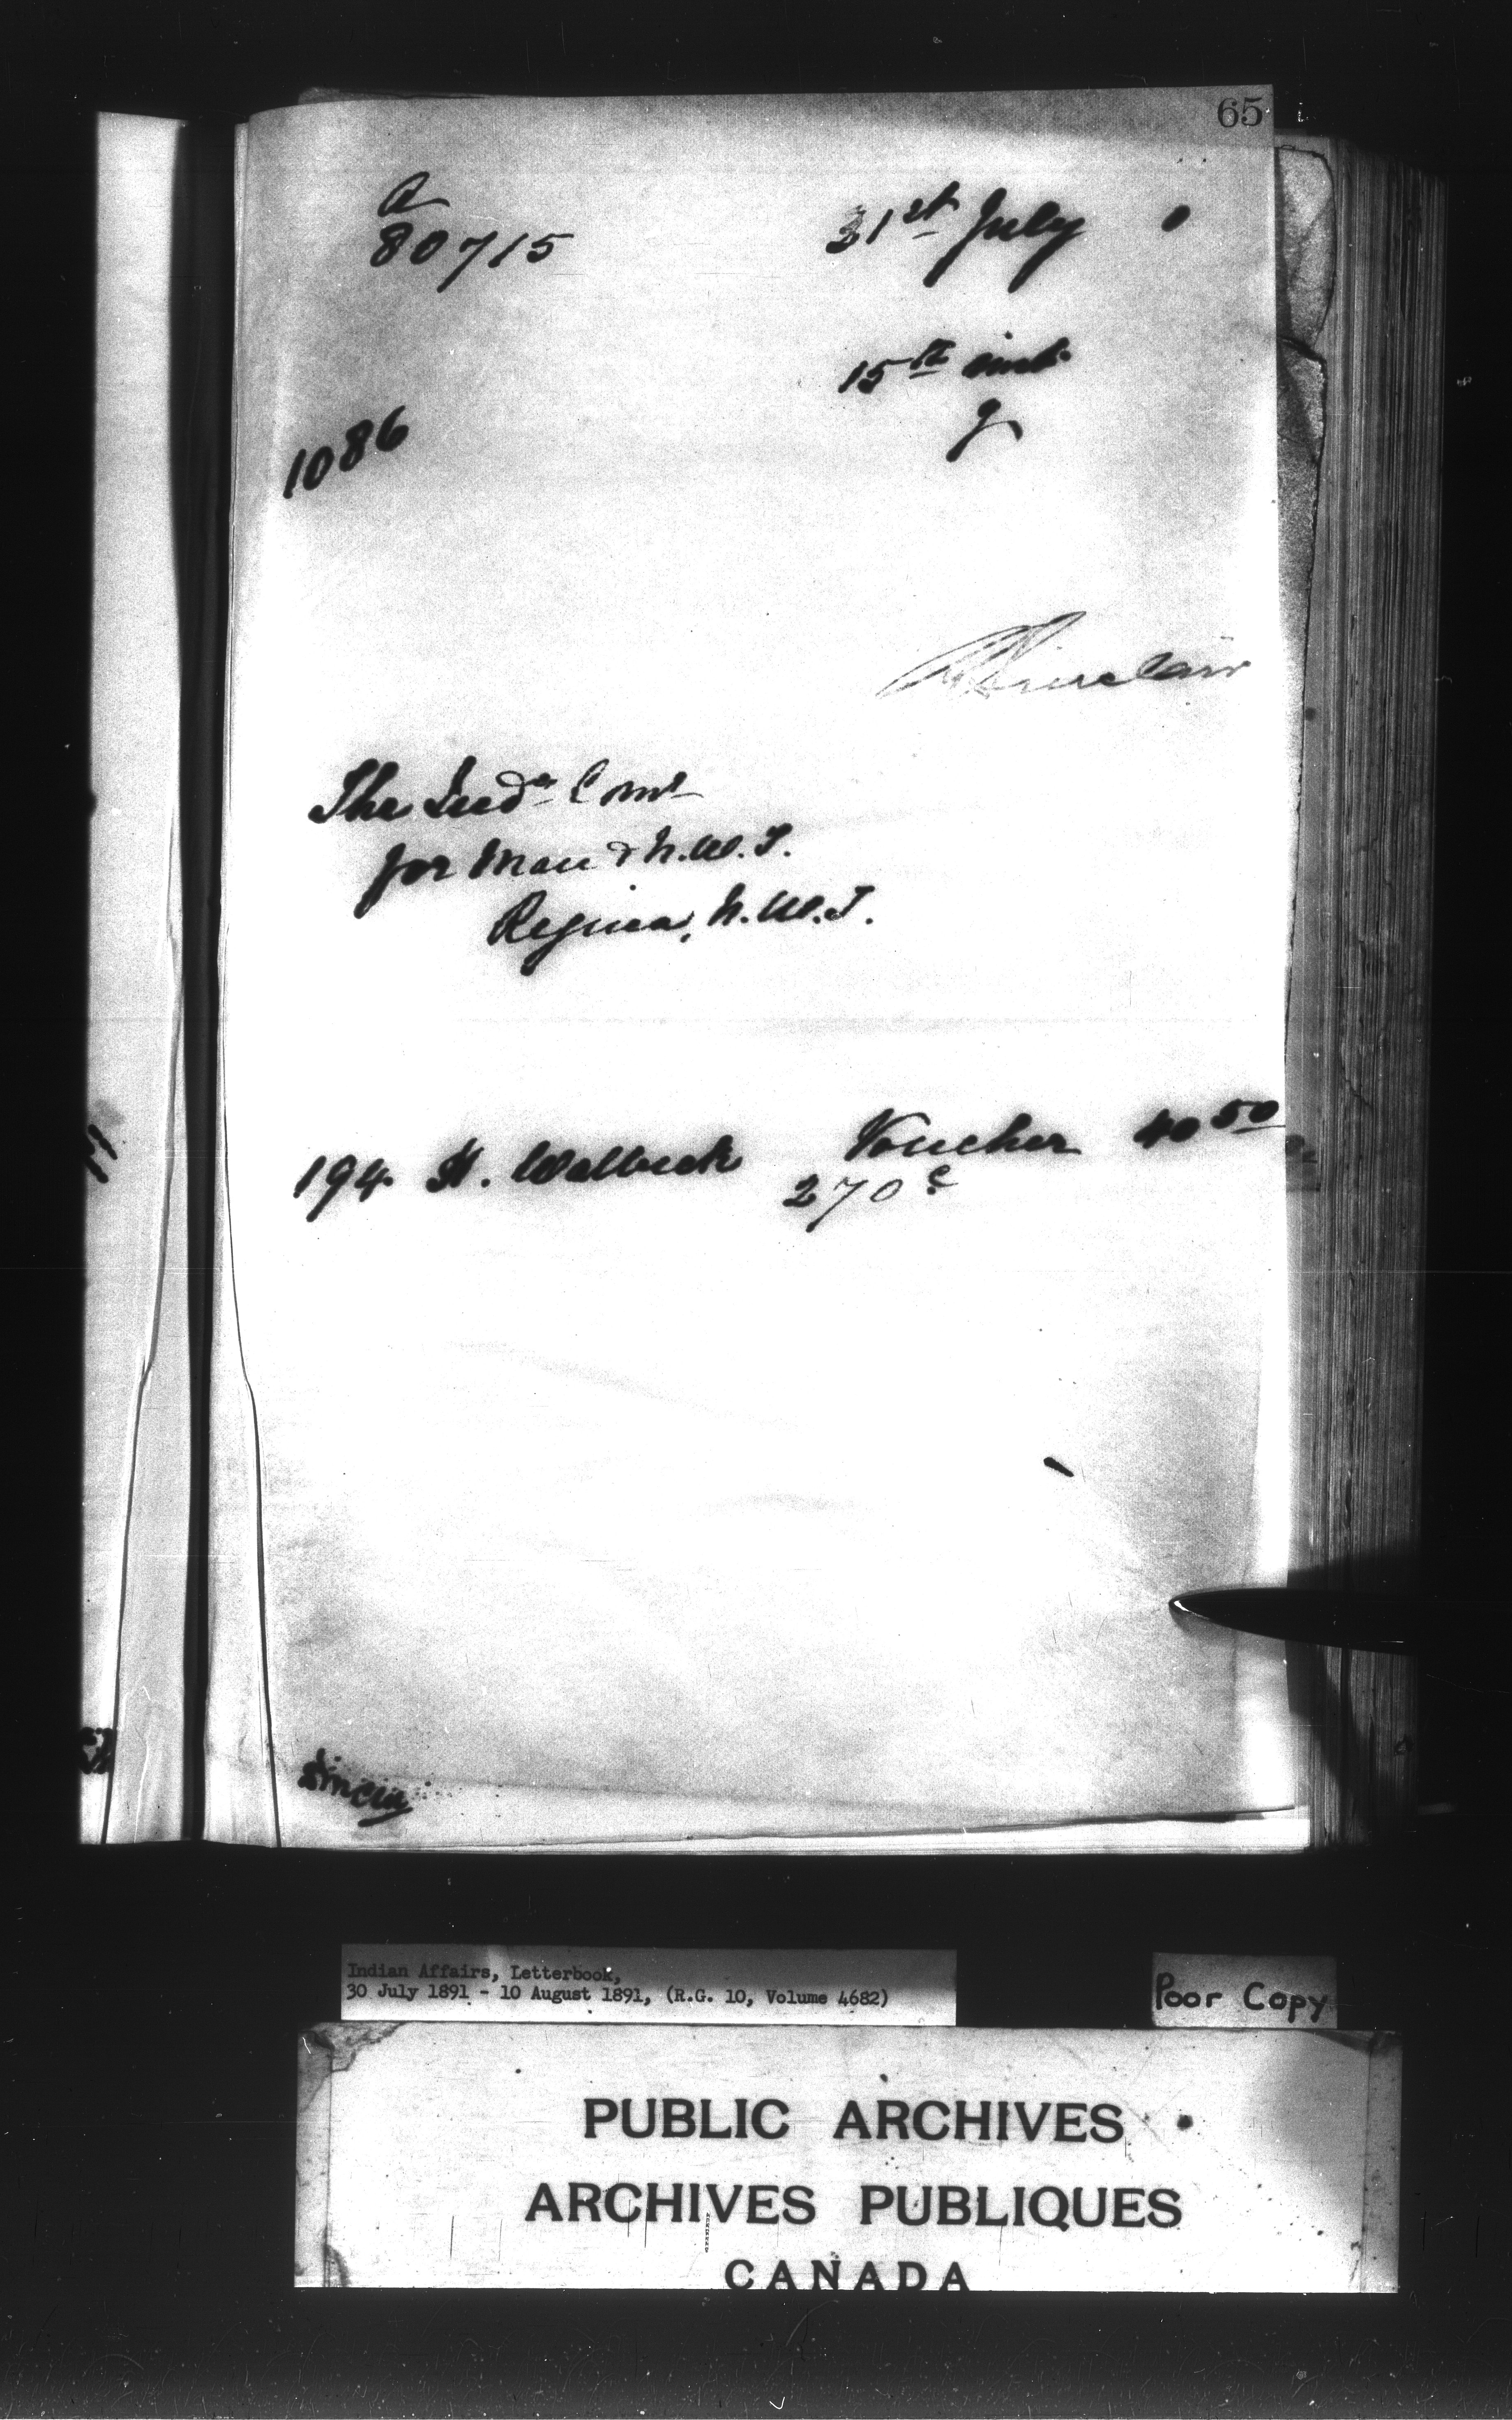 65
a
80715
31st July
15th inst
1086
Sinclair
The Ind'n Comr
for Man & N.W.T.
Regina, N.W.T.
194. H. Voucher 40 50
270 c
Indian Affairs, Letterbook,
30 July 1891 - 10 August 1891, (R.G. 10, Volume 4682)
Poor Copy
PUBLIC ARCHIVES
ARCHIVES PUBLIQUES
CANADA